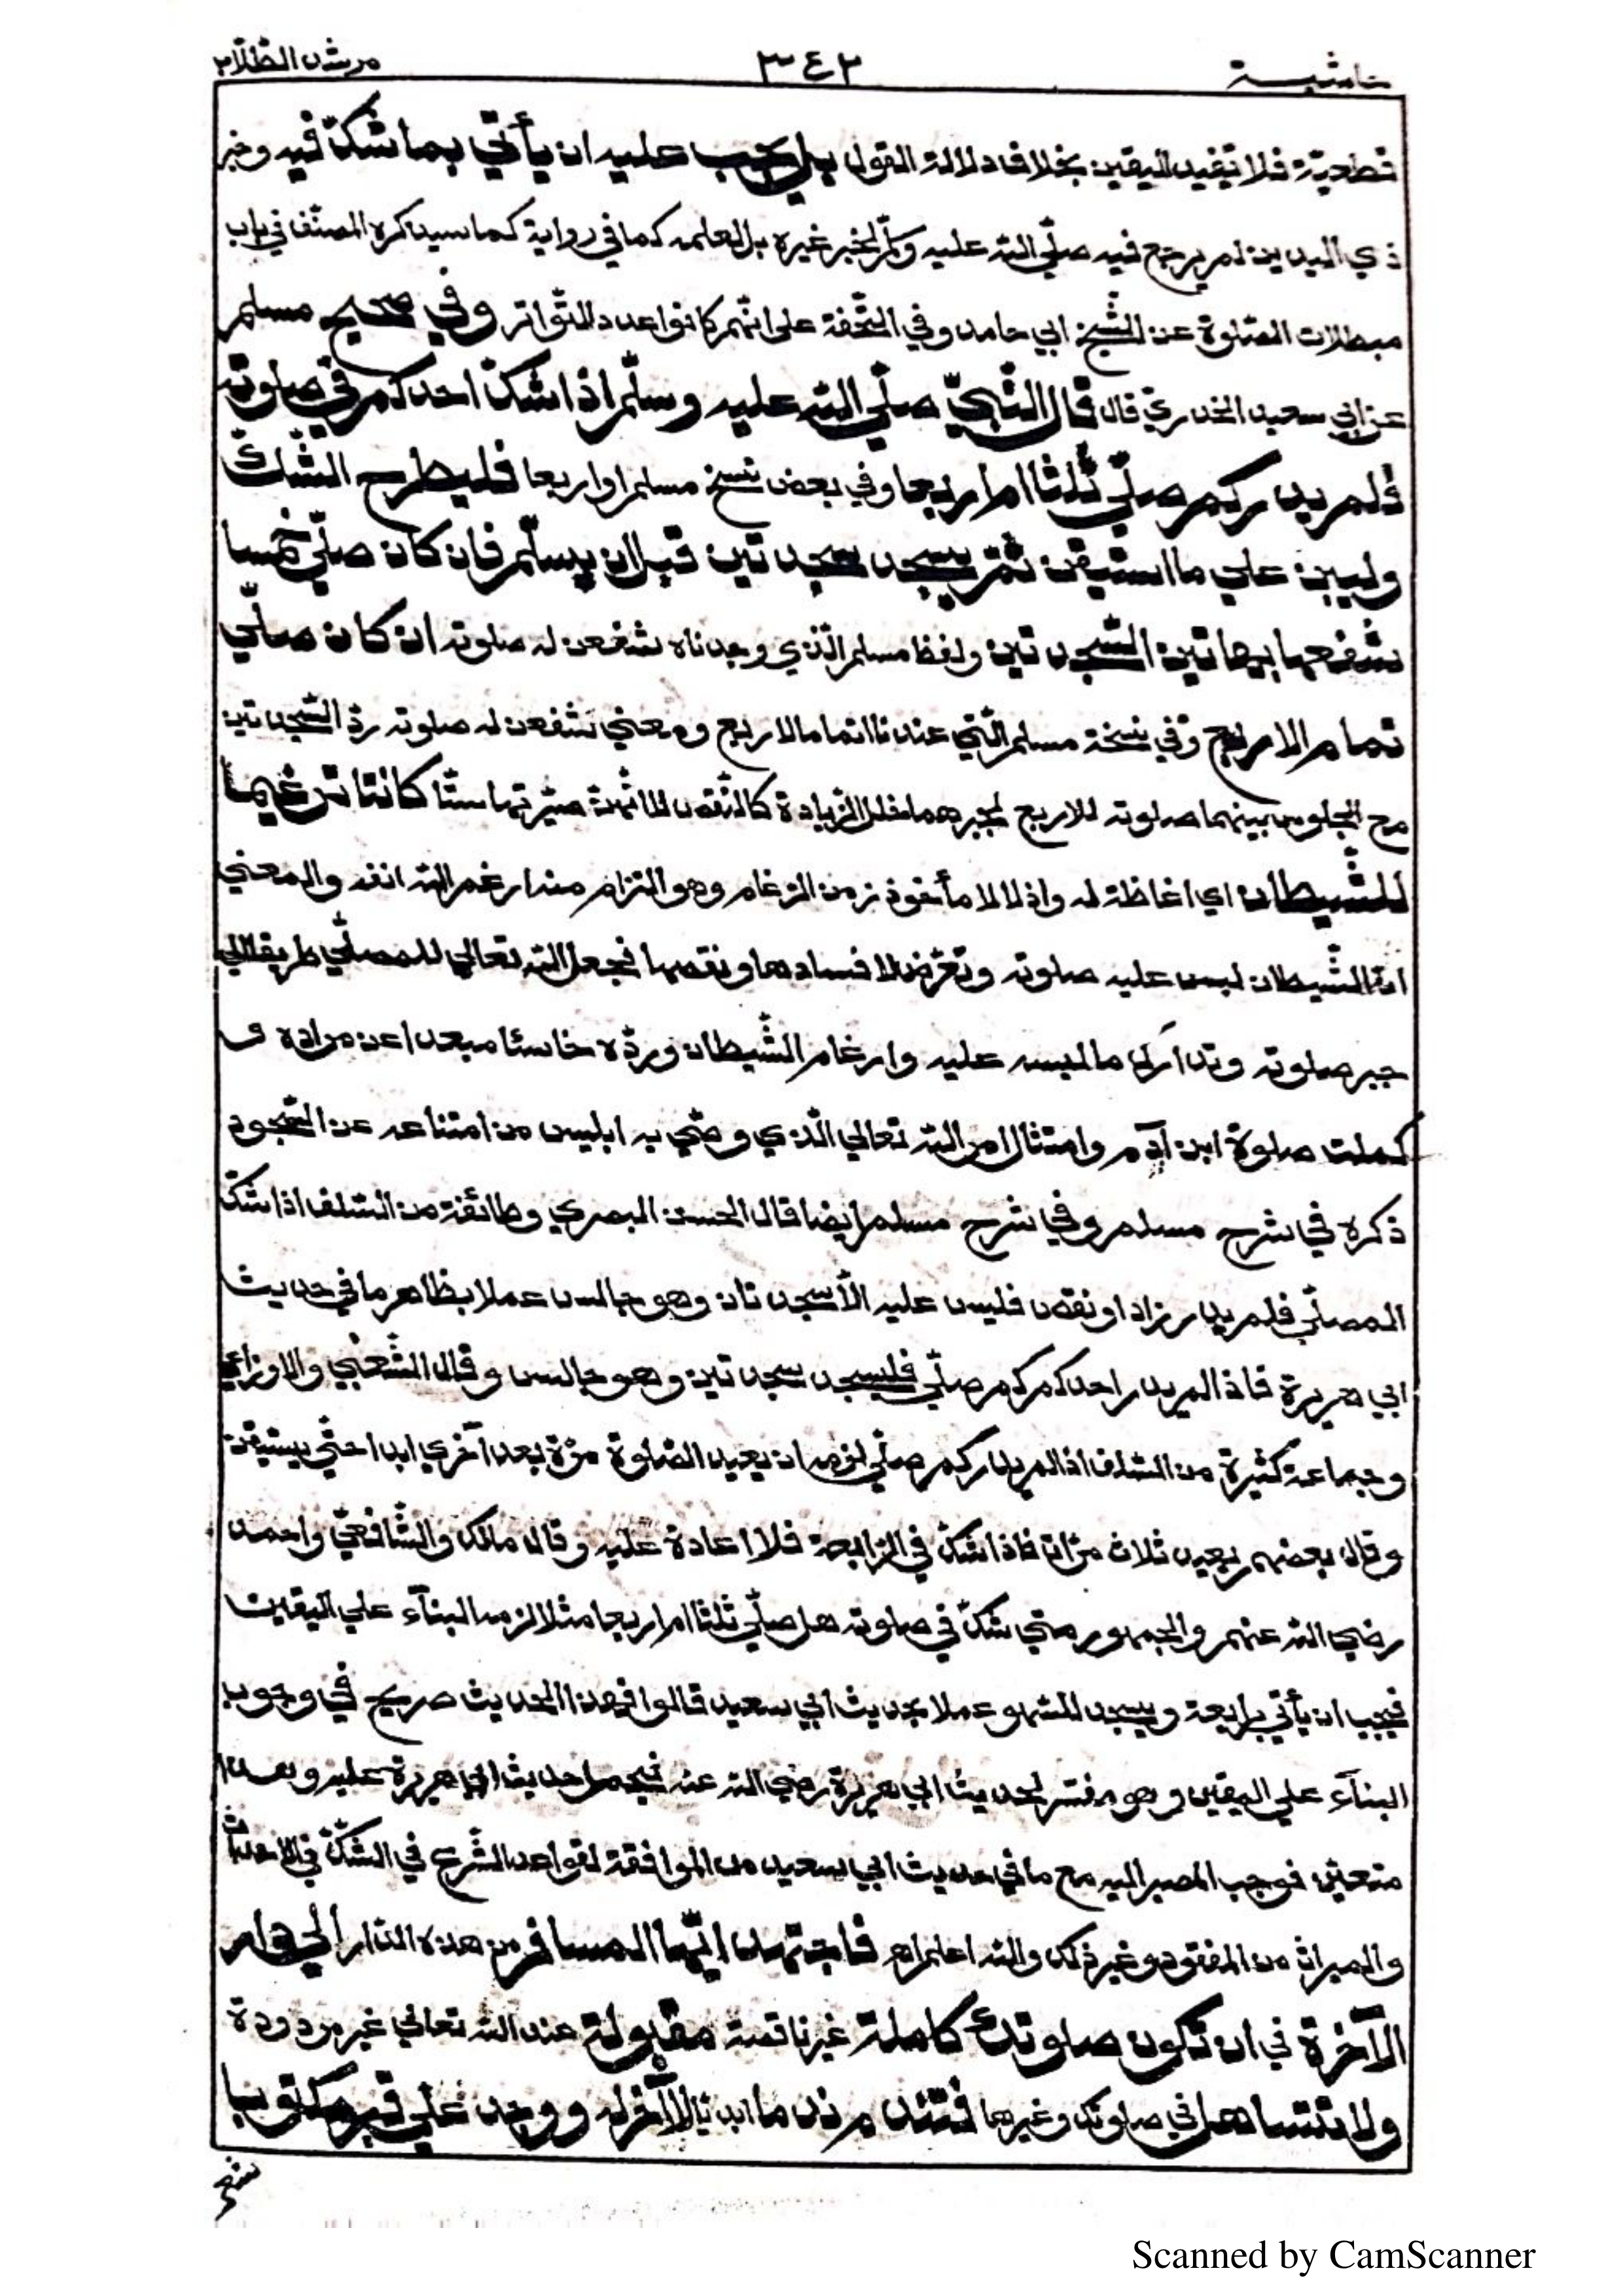 حاشية ٣٤٢ مرشد الطّلّاب
قطعيّة فلا تفيد اليقين بخلاف دلالة القول بل يجب عليه ان يأتي بما شكّ فيه وخبر
ذي اليدين لم يرجع فيه صلّي اللّه عليه وسلّم لخبر غيره بل لعلمه كما في رواية كما سيذكره المصنّف في باب
مبطلات الصّلوة عن الشّيخ ابي حامد وفي التّحفة علي انّهم كانوا عدد التّواتر وفي صحيح مسلم
عن ابي سعيد الخدريّ قال قال النّبيّ صلّي اللّه عليه وسلّم اذا شكّ احدكم في صلوته
فلم يدر كم صلّي ثلثا ام اربعا وفي بعض نسخ مسلم او اربعا فليطرح الشّكّ
وليبن علي ما استيقن ثمّ يسجد سجدتين قبل ان يسلّم فان كان صلّي خمسا
شفعها بهاتين السّجدتين ولفظ مسلم الّذي وجدناه شفعن له صلوته ان كان صلّي
تمام الاربع وفي نسخة مسلم الّتي عندنا اتماما لاربع ومعني شفعن له صلوته ردّ السّجدتين
مع الجلوس بينهما صلوته للاربع لجبرهما خلل الزّيادة كالنّقص لا انّهما صيّرتها ستّا كانتا ترغيما
للشّيطان اي اغاظة له واذلالا مأخوذ من الرّغام وهو التزام منه ارغم اللّه انفه والمعني
انّ الشّيطان لبس عليه صلوته وتعرّض لافسادها ونقصها فجعل اللّه تعالي للمصلّي طريقا الي
جبر صلوته وتدارك ما لبسه عليه وارغام الشّيطان وردّه خاسئا مبعدا عن مراده و
كملت صلوة ابن آدم وامتثال امر اللّه تعالي الّذي وصّي به ابليس من امتناعه عن السّجود
ذكره في شرح مسلم وفي شرح مسلم ايضا قال الحسن البصري وطائفة من السّلف اذا شكّ
المصلّي فلم يدر زاد او نقص فليس عليه الّا سجدتان وهو جالس عملا بظاهر ما في حديث
ابي هريرة فاذا لم يدر احدكم كم صلّي فليسجد سجدتين وهو جالس وقال الشّعبي والاوزاعي
وجماعة كثيرة من السّلف اذا لم يدر كم صلّي لزمه ان يعيد الصّلوة مرّة بعد اخري ابدا حتّي يستيقن
وقال بعضهم يعيد ثلاث مرّات فاذا شكّ في الرّابعة فلا اعادة عليه وقال مالك والشّافعيّ واحمد
رضي اللّه عنهم والجمهور متي شكّ في صلوته هل صلّي ثلثا ام اربعا مثلا لزمه البنآء علي اليقين
فيجب ان يأتي برابعة ويسجد للسّهو عملا بحديث ابي سعيد قالوا فهذا الحديث صريح في وجوب
البنآء علي اليقين وهو مفسّر لحديث ابي هريرة رضي اللّه عنه فيحمل حديث ابي هريرة عليه وهذا
متعيّن فوجب المصير اليه مع ما في حديث ابي سعيد من الموافقة لقواعد الشّرع في الشّكّ في الاحداث
والميراث من المفقود وغير ذلك واللّه اعلم اھ فاجتهد ايّها المسافر من هذه الدّار الي دار
الآخرة في ان تكون صلوتك كاملة غير ناقصة مقبولة عند اللّه تعالي غير مردودة
ولا تتساهل في صلوتك وغيرها فتندم ندما ابديّا لا آخر له ووجد علي قبر مكتوبا
Scanned by CamScanner